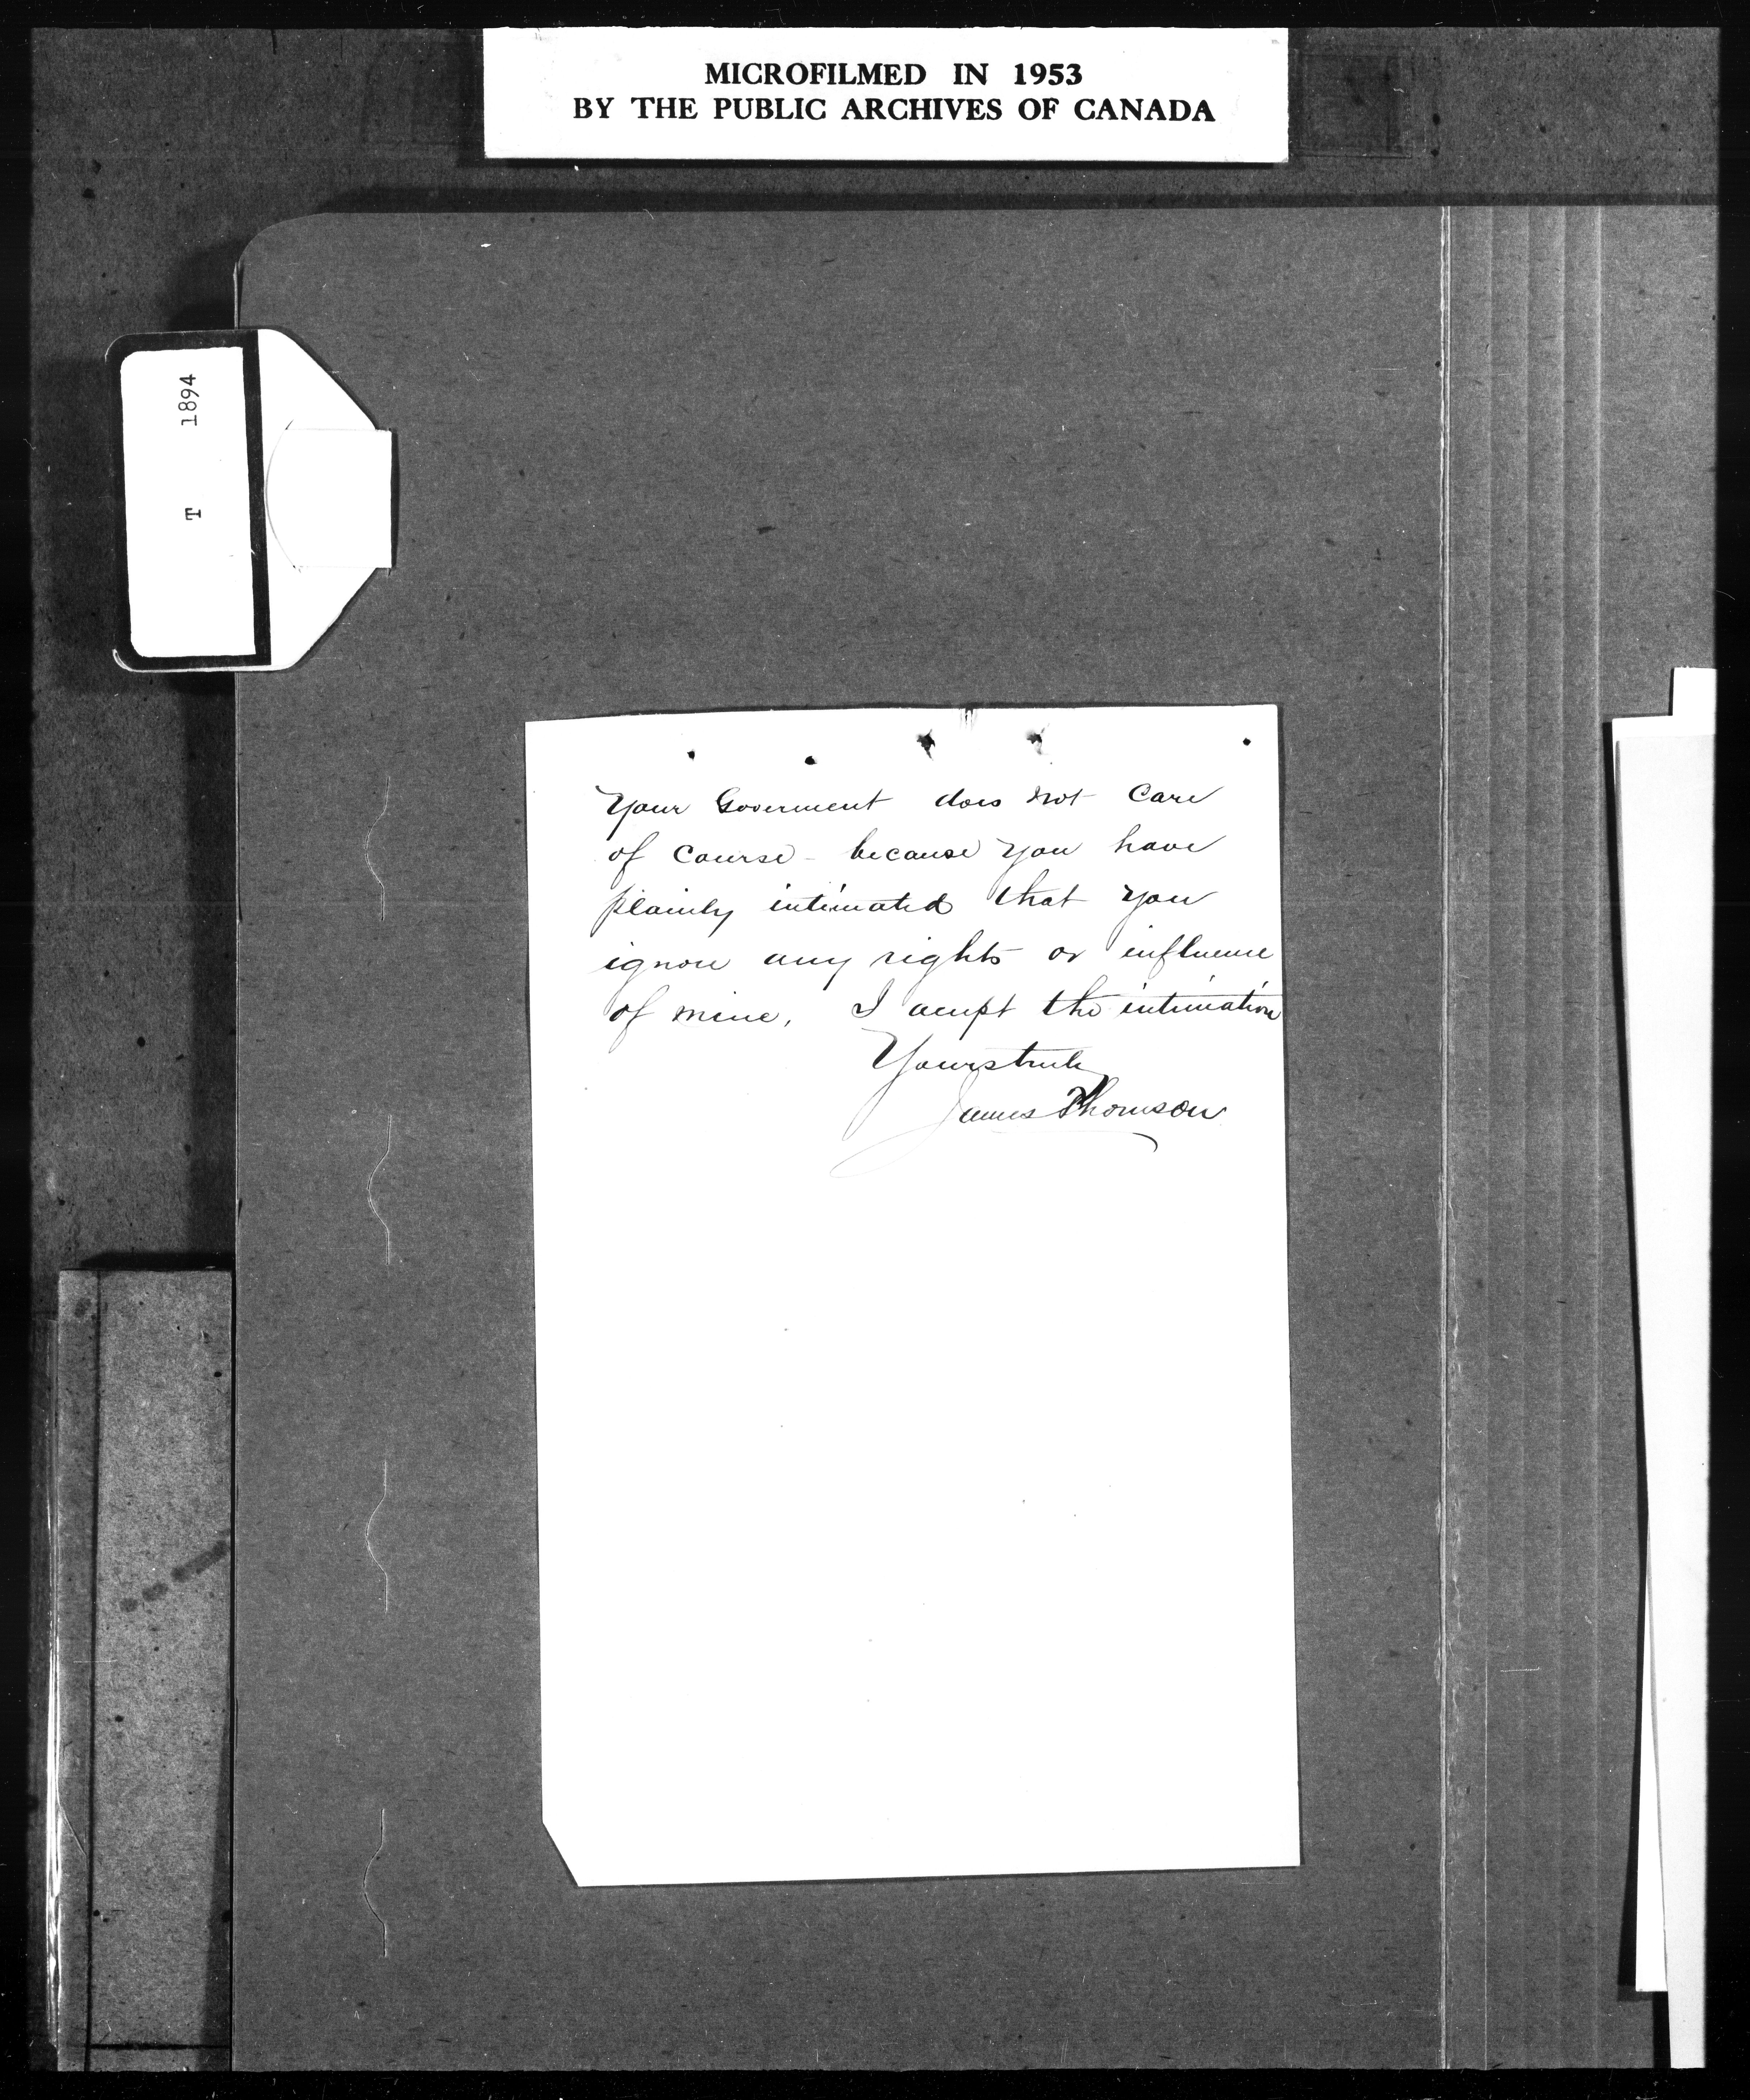 MICROFILMED IN 1953
BY THE PUBLIC ARCHIVES OF CANADA
T 1894
Your Goverment does not care
of course - because you have
plainly intimated that you
ignore any rights or influence
of mine. I accept the intimation
Yours truly
James Thomson